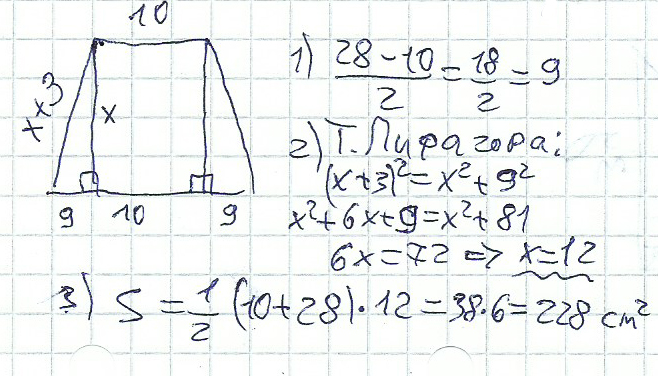 10
x+3
x
9 10 9
1) (28-10)/2 = 18/2 = 9
2) Т. Пифагора:
(x+3)² = x² + 9²
x² + 6x + 9 = x² + 81
6x = 72 => x = 12
3) S = 1/2 (10+28)·12 = 38·6 = 228 см²